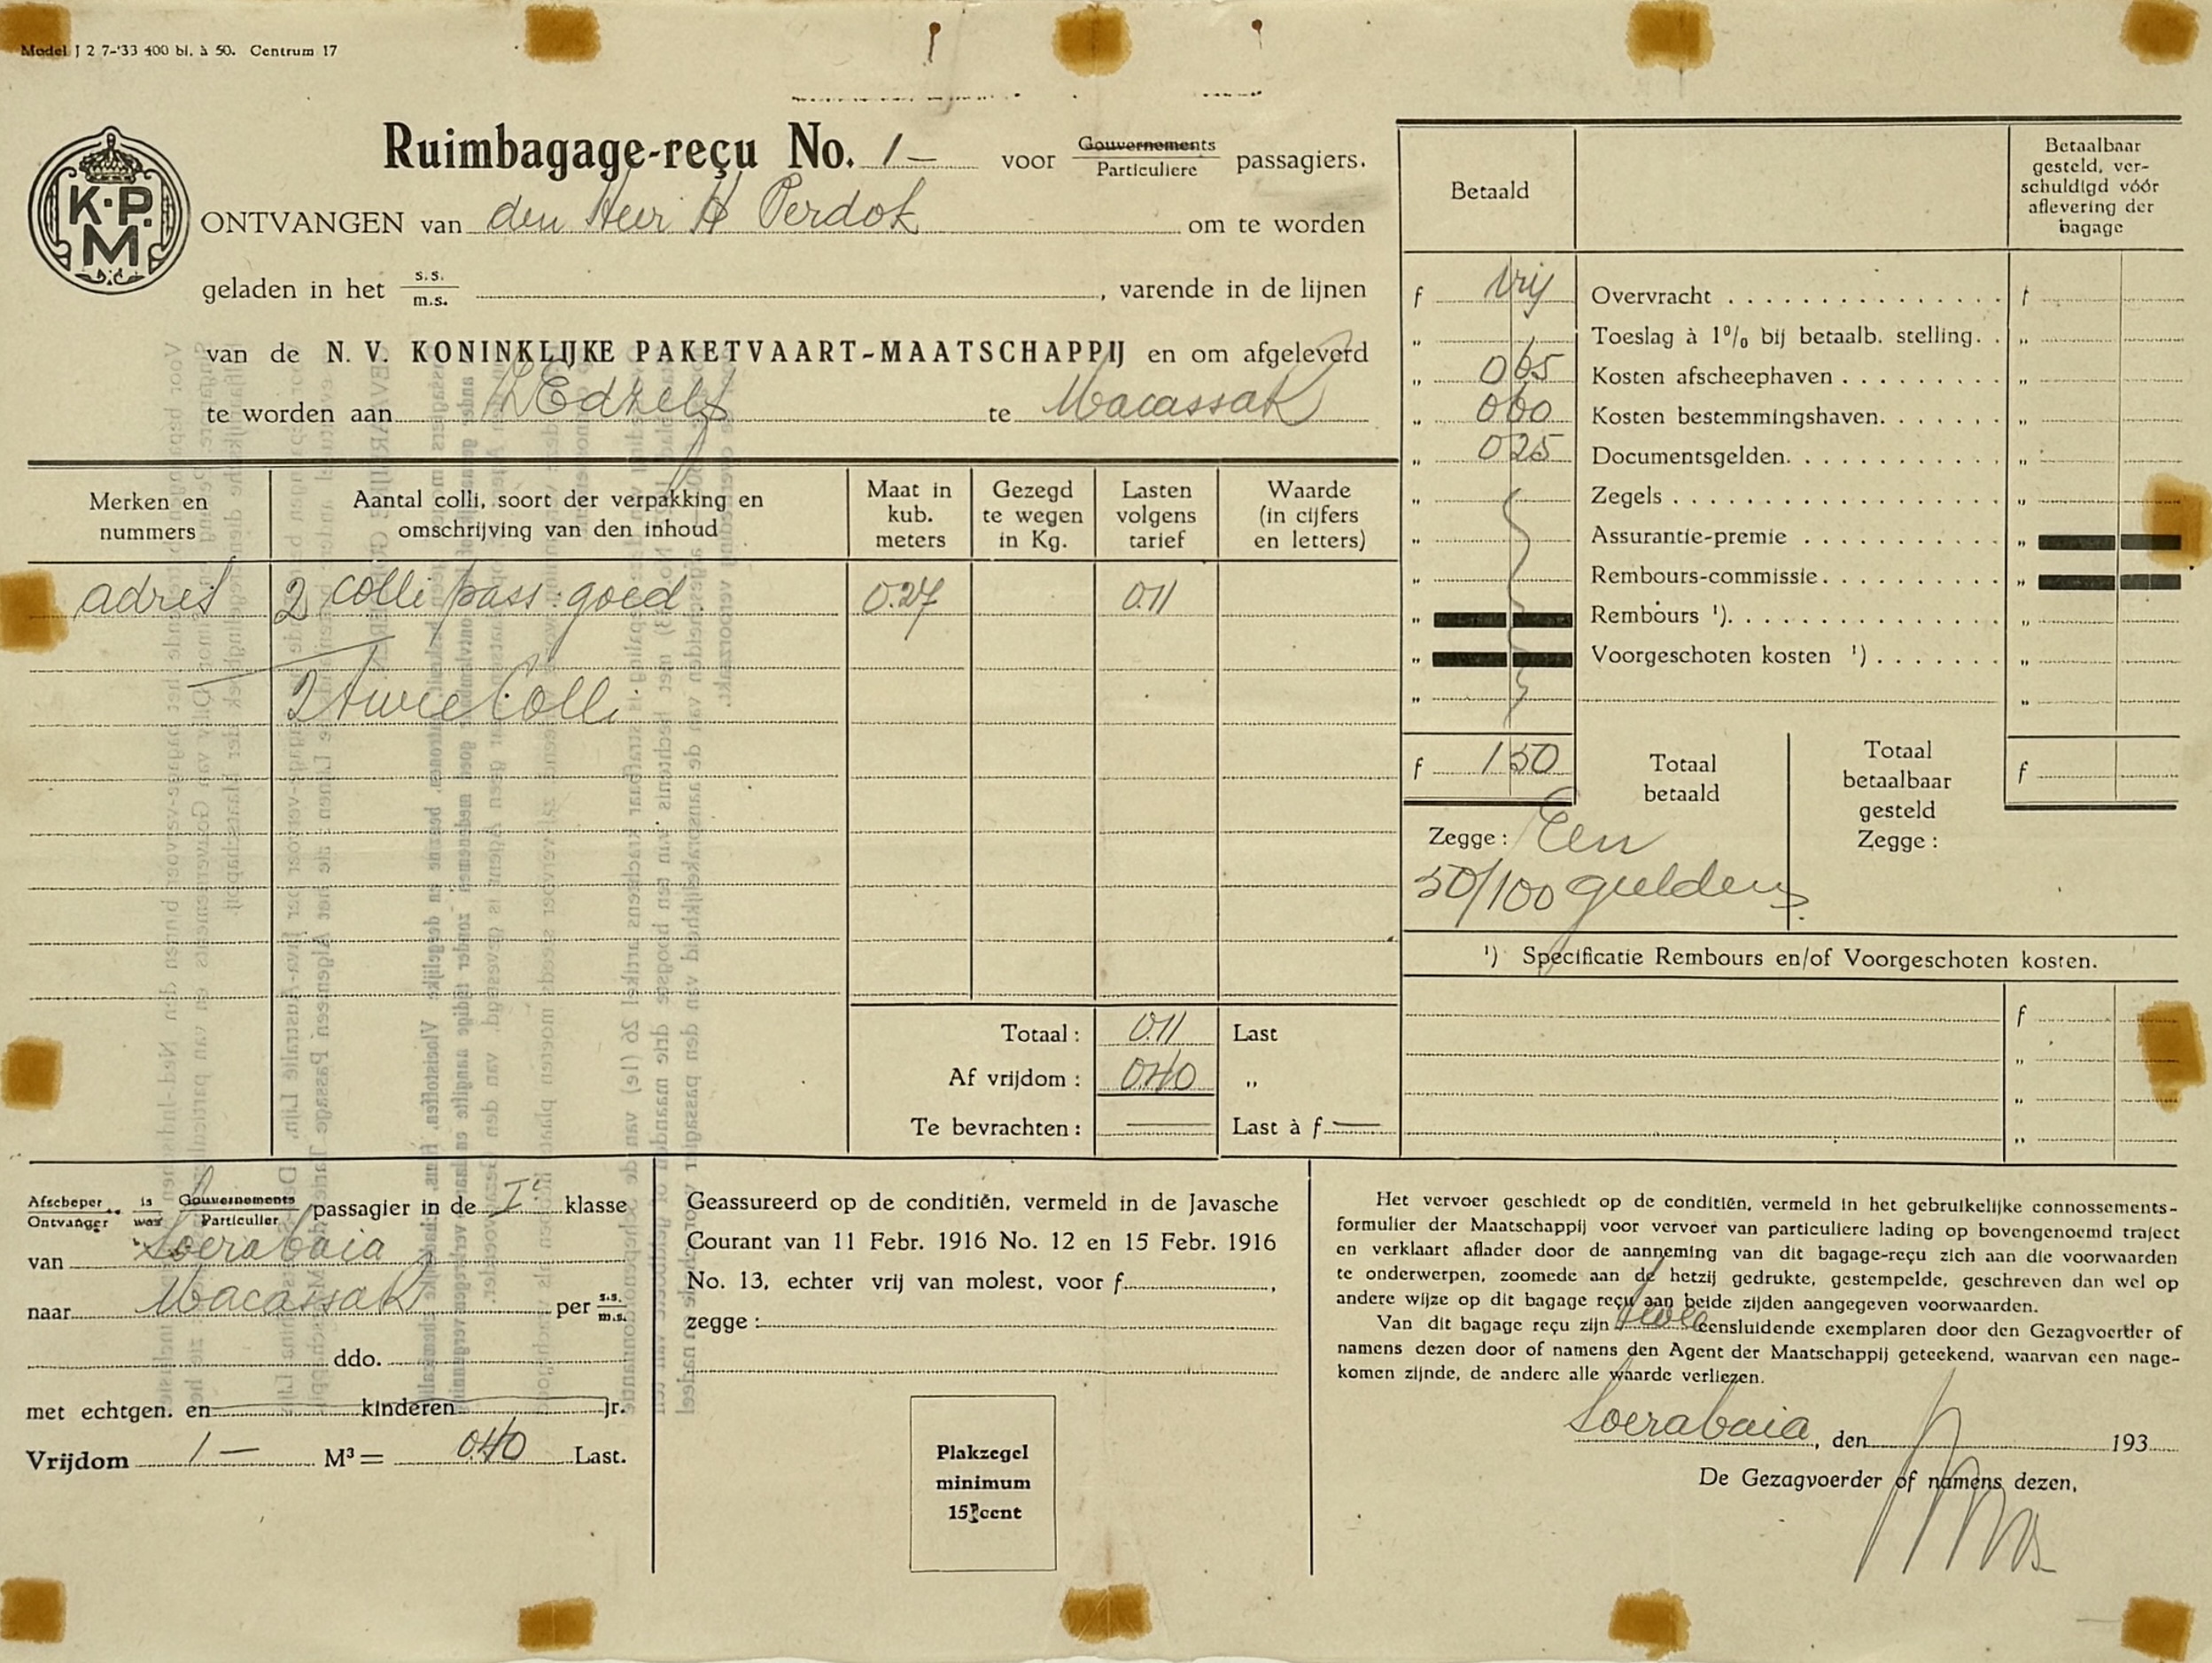 Model J 2 7-'33 400 bl. à 50. Centrum 17
K·P.M
Ruimbagage-reçu No. 1 — voor Gouvernements / Particuliere passagiers.
ONTVANGEN van den Heer H Perdok om te worden
geladen in het s.s. / m.s. , varende in de lijnen
van de N. V. KONINKLIJKE PAKETVAART-MAATSCHAPPIJ en om afgeleverd
te worden aan te Macassar
Merken en nummers
Aantal colli, soort der verpakking en omschrijving van den inhoud
Maat in kub. meters
Gezegd te wegen in Kg.
Lasten volgens tarief
Waarde (in cijfers en letters)
adres 2 colli pass. goed 0.27 0.11
2 Twee Colli
Totaal: 0.11 Last
Af vrijdom: 0.40 „
Te bevrachten: — Last à f —
Betaald
Betaalbaar gesteld, verschuldigd vóór aflevering der bagage
f vrij Overvracht f
„ Toeslag à 1% bij betaalb. stelling. „
„ 0 65 Kosten afscheephaven „
„ 0 60 Kosten bestemmingshaven. „
„ 0 25 Documentsgelden. „
„ Zegels „
„ Assurantie-premie „
„ Rembours-commissie „
„ Rembours ¹). „
„ Voorgeschoten kosten ¹) „
„ „
f 1 50 Totaal betaald Totaal betaalbaar gesteld f
Zegge: Een Zegge:
50/100 gulden
¹) Specificatie Rembours en/of Voorgeschoten kosten.
f
„
„
„
Afscheper / Ontvanger is / was Gouvernements / Particulier passagier in de Ie klasse
van Soerabaia
naar Macassar per s.s. / m.s.
ddo.
met echtgen. en kinderen jr.
Vrijdom 1 — M³ = 0.40 Last.
Geassureerd op de conditiën, vermeld in de Javasche
Courant van 11 Febr. 1916 No. 12 en 15 Febr. 1916
No. 13, echter vrij van molest, voor f ,
zegge:
Plakzegel
minimum
15 cent
Het vervoer geschiedt op de conditiën, vermeld in het gebruikelijke connossements-
formulier der Maatschappij voor vervoer van particuliere lading op bovengenoemd traject
en verklaart aflader door de aanneming van dit bagage-reçu zich aan die voorwaarden
te onderwerpen, zoomede aan de hetzij gedrukte, gestempelde, geschreven dan wel op
andere wijze op dit bagage reçu aan beide zijden aangegeven voorwaarden.
Van dit bagage reçu zijn twee eensluidende exemplaren door den Gezagvoerder of
namens dezen door of namens den Agent der Maatschappij geteekend, waarvan een nage-
komen zijnde, de andere alle waarde verliezen.
Soerabaia, den 193
De Gezagvoerder of namens dezen,